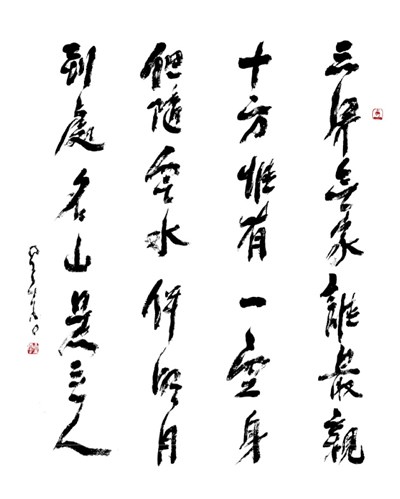 三界無家誰最親
十方惟有一空身
但隨雲水伴明月
到處名山是主人